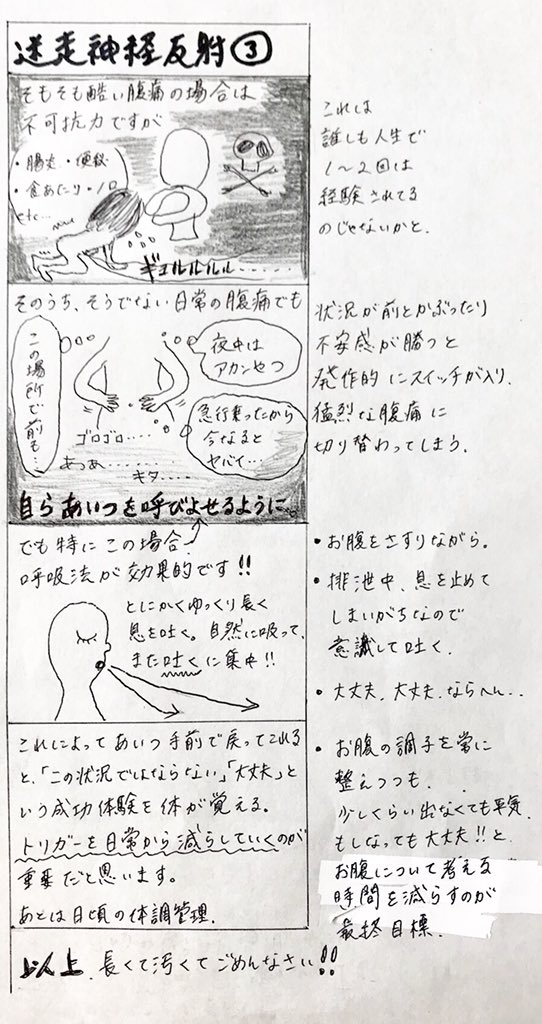 迷走神経反射③
そもそも酷い腹痛の場合は
不可抗力ですが
・腸炎・便秘
・食あたり・ノロ
etc…
ギュルルルル……
これは
誰しも人生で
1〜2回は
経験されてる
のじゃないかと。
そのうち、そうでない日常の腹痛でも
この場所で前も…
夜中は
アカンやつ
急行乗ったから
今なると
ヤバイ…
ゴロゴロ…
あっあ……
キタ……
自らあいつを呼びよせるように。
状況が前とかぶったり
不安感が勝つと
発作的にスイッチが入り、
猛烈な腹痛に
切り替わってしまう。
でも特にこの場合
呼吸法が効果的です!!
とにかくゆっくり長く
息を吐く。自然に吸って、
また吐くに集中!!
・お腹をさすりながら。
・排泄中、息を止めて
しまいがちなので
意識して吐く。
・大丈夫、大丈夫、ならへん…
これによってあいつ手前で戻ってこれる
と、「この状況ではならない」「大丈夫」と
いう成功体験を体が覚える。
トリガーを日常から減らしていくのが
重要だと思います。
あとは日頃の体調管理。
・お腹の調子を常に
整えつつも、
少しくらい出なくても平気、
もしなっても大丈夫!!と、
お腹について考える
時間を減らすのが
最終目標。
以上、長くて汚くてごめんなさい!!